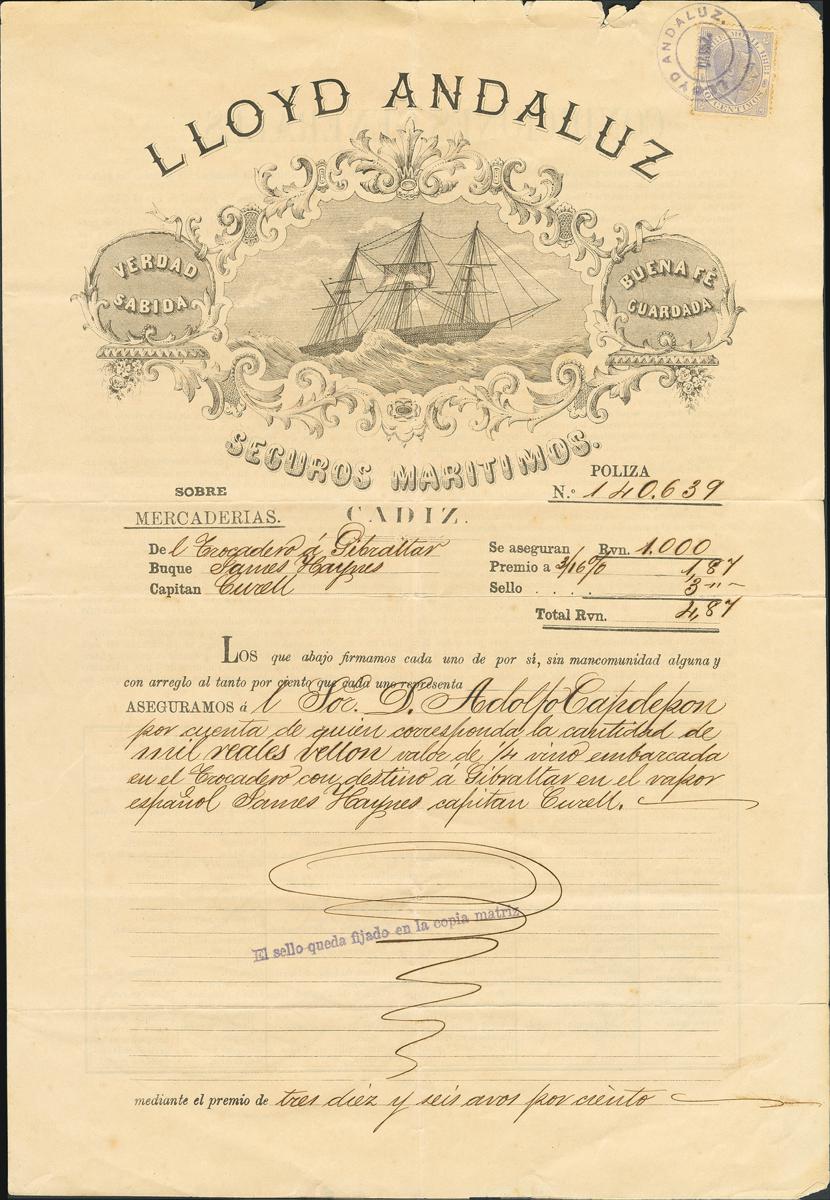 LLOYD ANDALUZ.
LLOYD ANDALUZ
VERDAD
SABIDA
BUENA FÉ
GUARDADA
SEGUROS MARITIMOS.
POLIZA
SOBRE
N.º 140.639
MERCADERIAS.
CADIZ.
Del Trocadero á Gibraltar
Se aseguran Rvn. 1.000
Buque James Haynes
Premio a 3/16 % 1,87
Capitan Curell
Sello . . . . 3 -"-
Total Rvn. 4,87
LOS que abajo firmamos cada uno de por sí, sin mancomunidad alguna y
con arreglo al tanto por ciento que cada uno representa
ASEGURAMOS á l Sor. D. Adolfo Capdepon
por cuenta de quien corresponda la cantidad de
mil reales vellon valor de 1/4 vino embarcada
en el Trocadero con destino á Gibraltar en el vapor
español James Haynes capitan Curell.
El sello queda fijado en la copia matriz
mediante el premio de tres diéz y seis avos por ciento